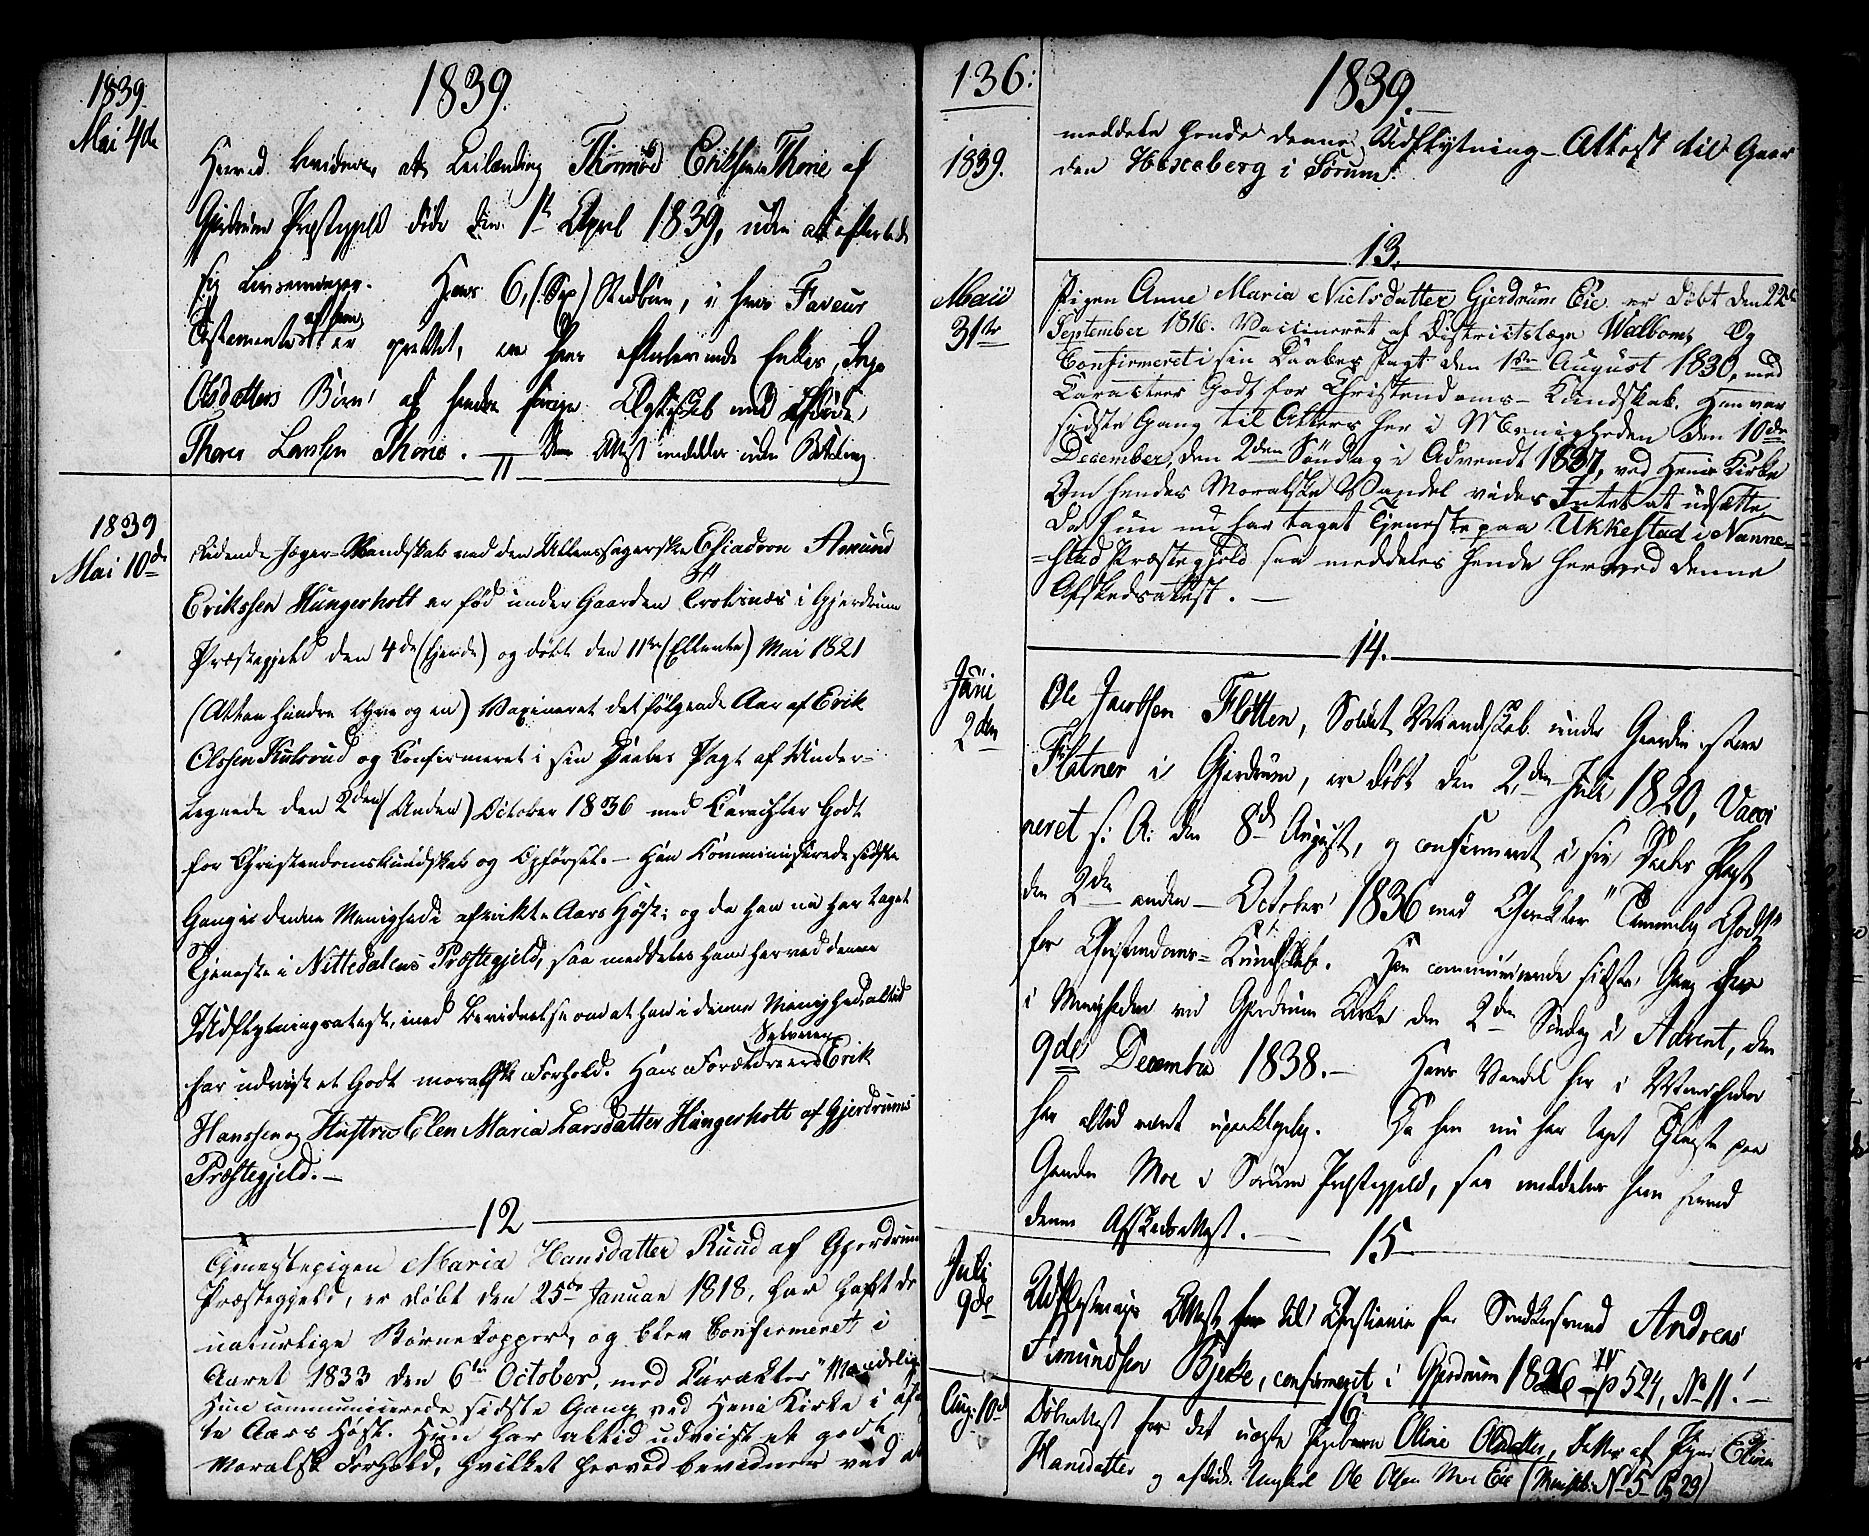 1839.
1839.
Mai 4de
Herved bevidnes, at Leilænding Thormod Erichsen Thorie af
Gjerdrum Præstegjeld døde den 1te April 1839, uden at efterlade
sig Livsarvinger. Hans 6, (Sex) Stedbørn, i hvis Faveur
af ham
Testamentet er oprettet, ere hans efterlevende Enkes, Inge
Olsdatters Børn af hendes forrige Ægteskab med afdøde
Thores Larsen Thorie. Den Attest meddeles uden Betaling.
11
1839
Mai 10de
Ridende Jæger Mandskab ved den Ullensagerske Esqvadron Amund
Erikssen Hungerholt er fød under Gaarden Trolsnæs i Gjerdrum
Præstegjeld den 4de (fjerde) og døbt den 11te (Ellevte) Mai 1821
(Atten hundre Tyve og en) Vaxineret det følgende Aar af Erik
Olssen Kulsrud og Confirmeret i sin Daabes Pagt af Under-
tegnede den 2den (Anden) October 1836 med Carachter Godt
for Christendomskundskab og Opførsel. - Han Kommuniserede sidste
Gang i denne Menighed i afvikte Aars Høst; og da han nu har taget
Tjeneste i Nittedalens Præstegjeld, saa meddeles ham herved denne
Udflytningsatest, med Bevidnelse om at han i denne Menighed altid
har udviist et Godt moralsk Forhold. Hans Forældre ere Erik
Hanssen og Hustru Elen Maria Larsdatter Hungerholt af Gjerdrums
Præstegjeld. -
12
Tjenestepigen Maria Hansdatter Ruud af Gjerdrum
Præstegjeld, er døbt den 25de Januar 1818, har havt de
naturlige Børnekopper, og blev Confirmeret i
Aaret 1833 den 6te October, med Karakter "Maadelig"
Hun communicerede sidste Gang ved Heni Kirke i afvig
te Aars Høst. Hun har altid udviist et godt
Moralsk Forhold, hvilket herved bevidnes ved at
136:
1839.
1839.
meddele hende denne Udflytning-Attest til Gaar
den Hexeberg i Sørum.
13.
Maii
31te
Pigen Anne Maria Nielsdatter Gjerdrum Eie er døbt den 22de
September 1816. Vaccineret af Districtslæge Walbom, Og
Confirmeret i sin Daabes Pagt den 1ste August 1830, med
Caracteer Godt for Christendoms-Kundskab. Hun var
sidste Gang til Alters her i Menigheden den 10de
December, den 2den Søndag i Advendt 1837, ved Henie Kirke
Om hendes Moralske Vandel vides Intet at udsætte
Da hun nu har taget Tjeneste paa Ukkestad i Nanne-
=stad Præstegjeld saa meddeles hende herved denne
Afskedsattest. -
14.
Juni
2den
Ole Jacobsen Flotten, Soldat Mandskab under Gaarden store
Flatner i Gjerdrum, er døbt den 2den Juli 1820, Vacci
neret s: A: den 8de August, og confirmeret i sin Daabes Pagt
den 2den anden - October 1836 med Charakter "Temmelig Godt"
for Christendoms-Kundskab. Han communicerede sidste Gang her
i Menigheden ved Gjerdrum Kirke den 2den Søndag i Advent, den
9de December 1838. - Hans Vandel her i Menigheden
har altid været upaaklagelig. Da han nu har taget Tjeneste paa
Gaarden Moe i Sørum Præstegjeld, saa meddeles ham herved
denne Afskedsattest. -
15
Juli
9de
Udflytnings Attest til Christiania for Andreas
Amundsen Bjerke, confirmeret i Gjerdrum 1826 - IV p 524, No 11. -
16
Aug: 10de
Døbeattest for det uægte Pigebarn Oline Olsdatter, Datter af Pigen Eline
Hansdatter og afdøde Ungkarl Ole Olsen Moe Eie (Ministb: No 5 Pg 29)